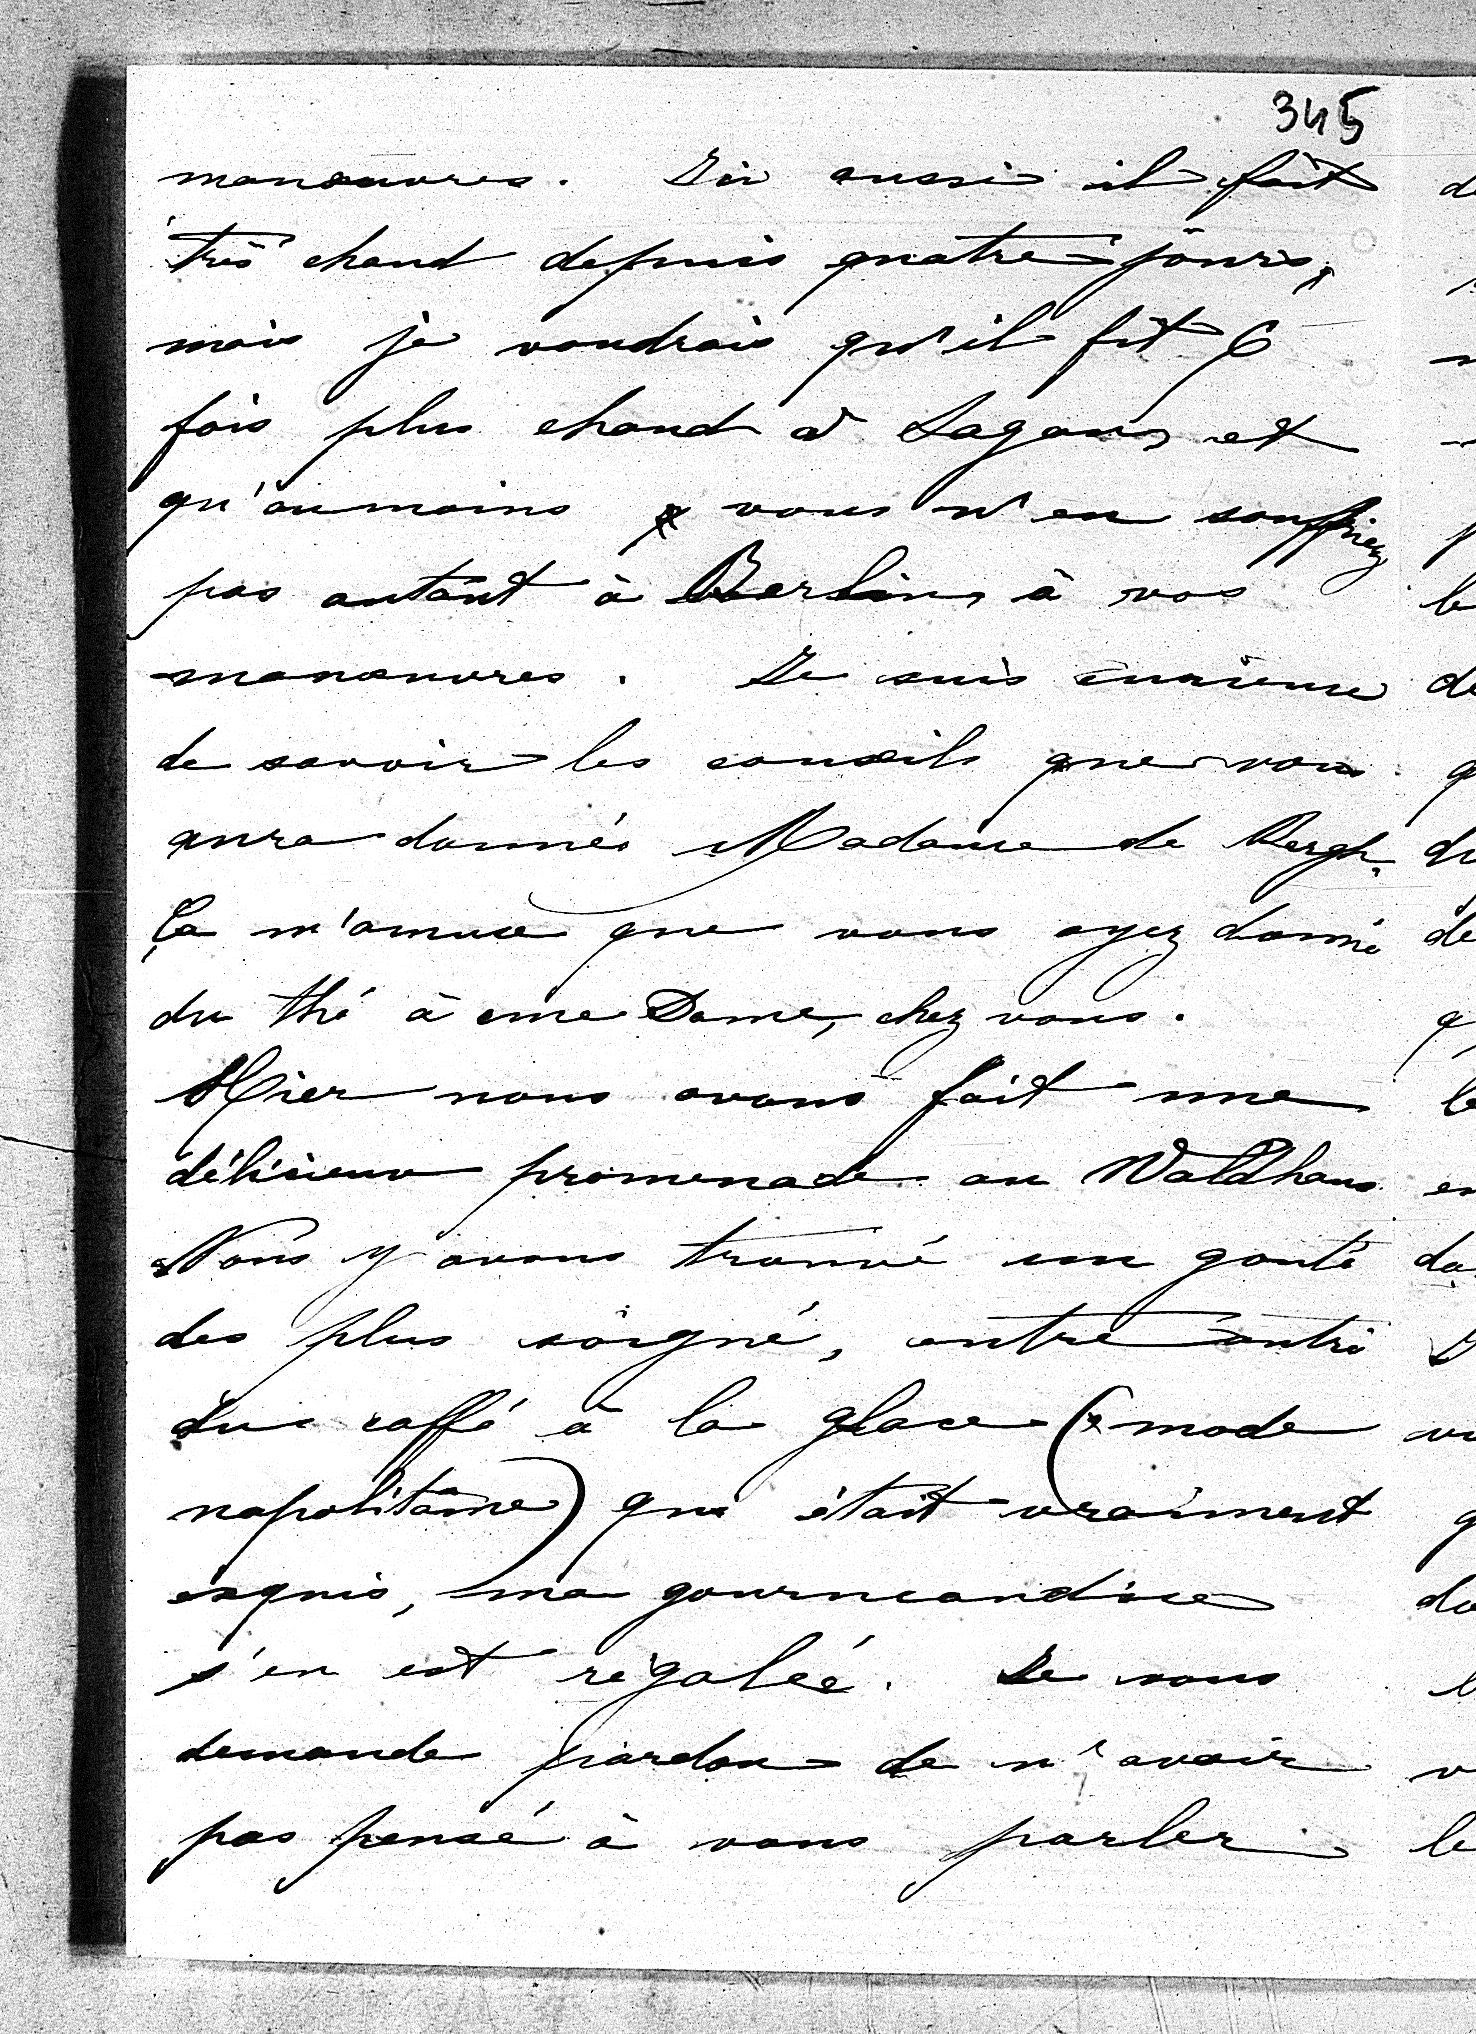 345
manœuvres. Ici aussi il fait
très chaud depuis quatre jours,
mais je voudrais qu'il fit 6
fois plus chaud à Sagan, et
qu'au moins vous n'en souffriez
pas autant à Berlin, à vos
manœuvres. Je suis curieuse
de savoir les conseils que vous
aura donnés Madame de Bergh.
Ça m'amuse que vous ayez donné
du thé à une Dame, chez vous.
Hier nous avons fait une
délicieuse promenade au Waldhaus
Nous y avons trouvé un gouté
des plus soigné, entre autre
du caffé à la glace (mode
napolitaine) qui était vraiment
exquis, ma gourmandise
s'en est régalée. Je vous
demande pardon de n'avoir
pas pensé à vous parler